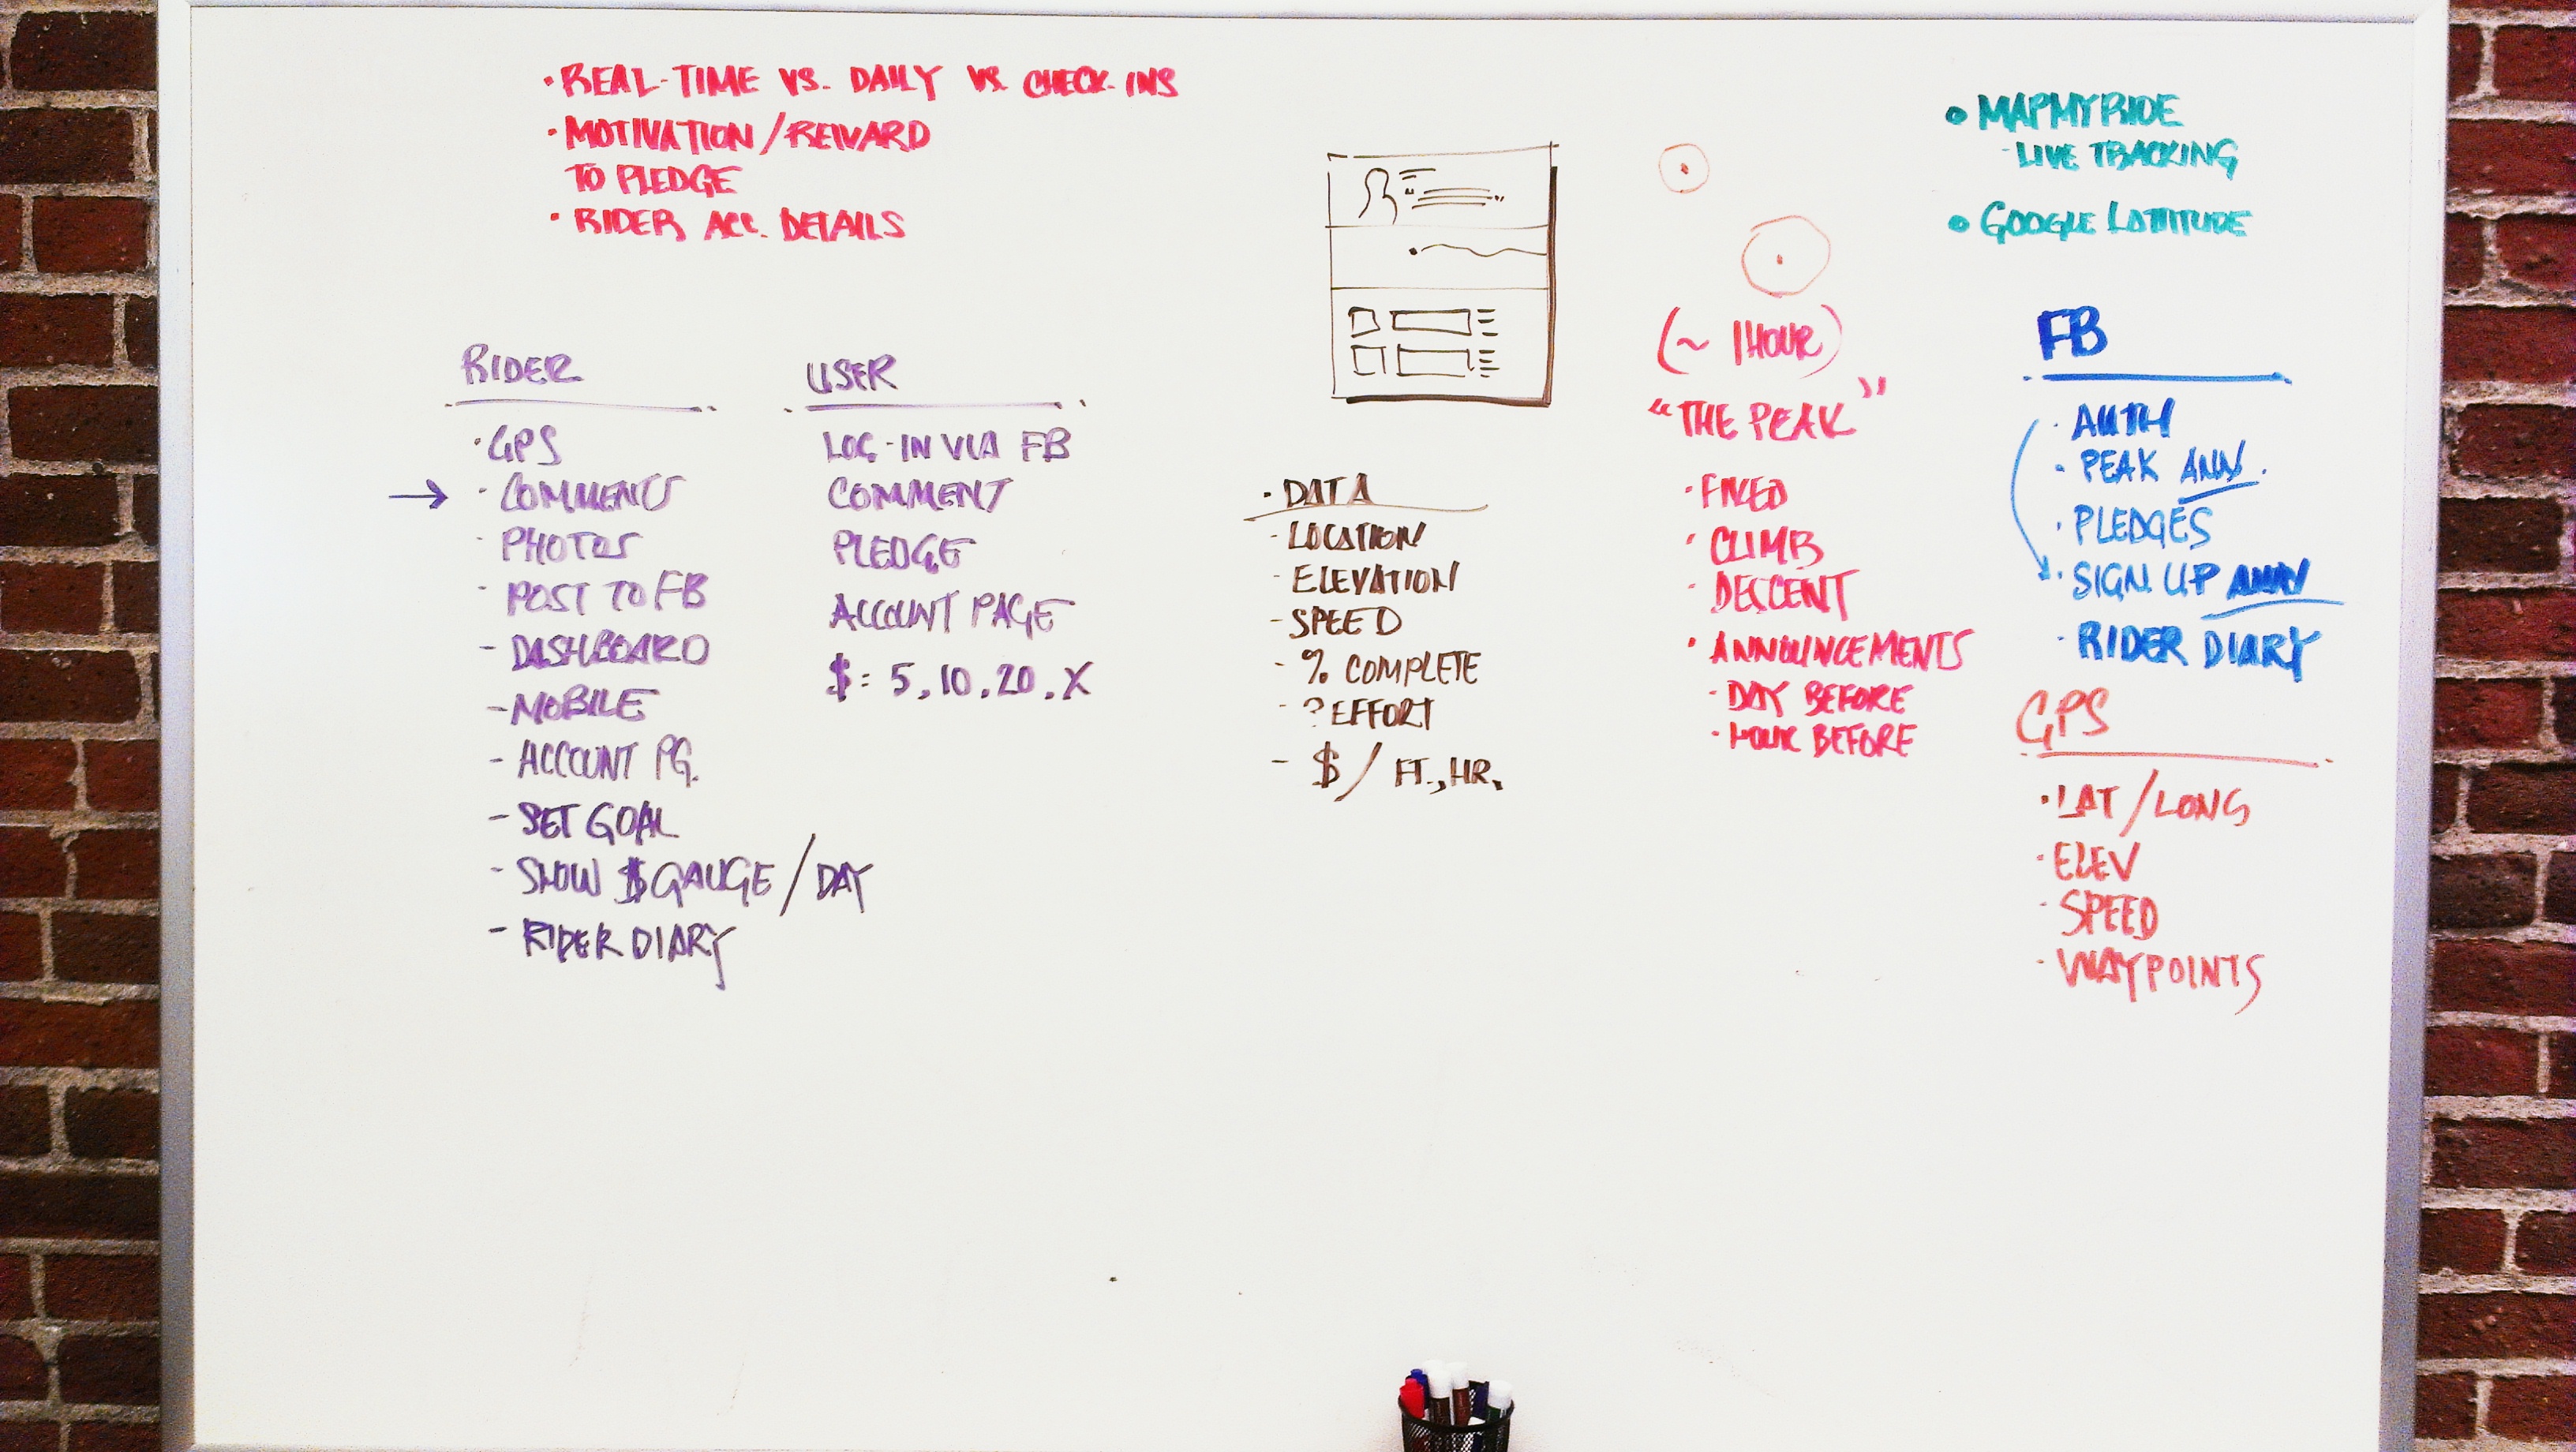 · REAL-TIME VS. DAILY VS. CHECK-INS
· MOTIVATION/REWARD
TO PLEDGE
· RIDER ACC. DETAILS
RIDER
· GPS
→ · COMMENTS
· PHOTOS
· POST TO FB
- DASHBOARD
- MOBILE
- ACCOUNT PG.
- SET GOAL
- SHOW $ GAUGE / DAY
- RIDER DIARY
USER
LOG-IN VIA FB
COMMENT
PLEDGE
ACCOUNT PAGE
$: 5, 10, 20, X
· DATA
- LOCATION
- ELEVATION
- SPEED
- % COMPLETE
- ? EFFORT
- $ / FT., HR.
(~ 1 HOUR)
"THE PEAK"
· FIXED
· CLIMB
· DESCENT
· ANNOUNCEMENTS
· DAY BEFORE
· HOUR BEFORE
• MAPMYRIDE
- LIVE TRACKING
• GOOGLE LATTITUDE
FB
· AUTH
· PEAK ANN.
· PLEDGES
· SIGN UP ANN
· RIDER DIARY
GPS
· LAT / LONG
· ELEV
· SPEED
· WAYPOINTS